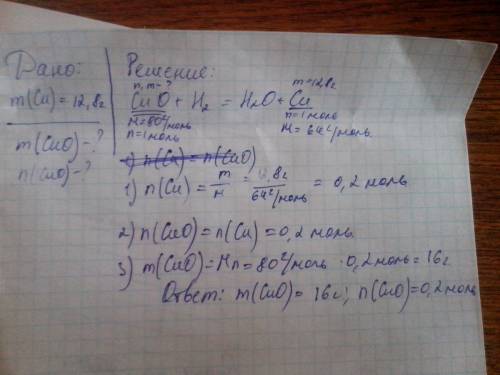 Дано:
m(Cu) = 12,8г
m(CuO) - ?
n(CuO) - ?
Решение:
n, m - ?
m = 12,8г
CuO + H₂ = H₂O + Cu
M = 80 г/моль
n = 1 моль
n = 1 моль
M = 64 г/моль
1) n(Cu) = n(CuO)
1) n(Cu) = m/M = 12,8г/64 г/моль = 0,2 моль
2) n(CuO) = n(Cu) = 0,2 моль
3) m(CuO) = Mn = 80 г/моль · 0,2 моль = 16г
Ответ: m(CuO) = 16г; n(CuO) = 0,2 моль